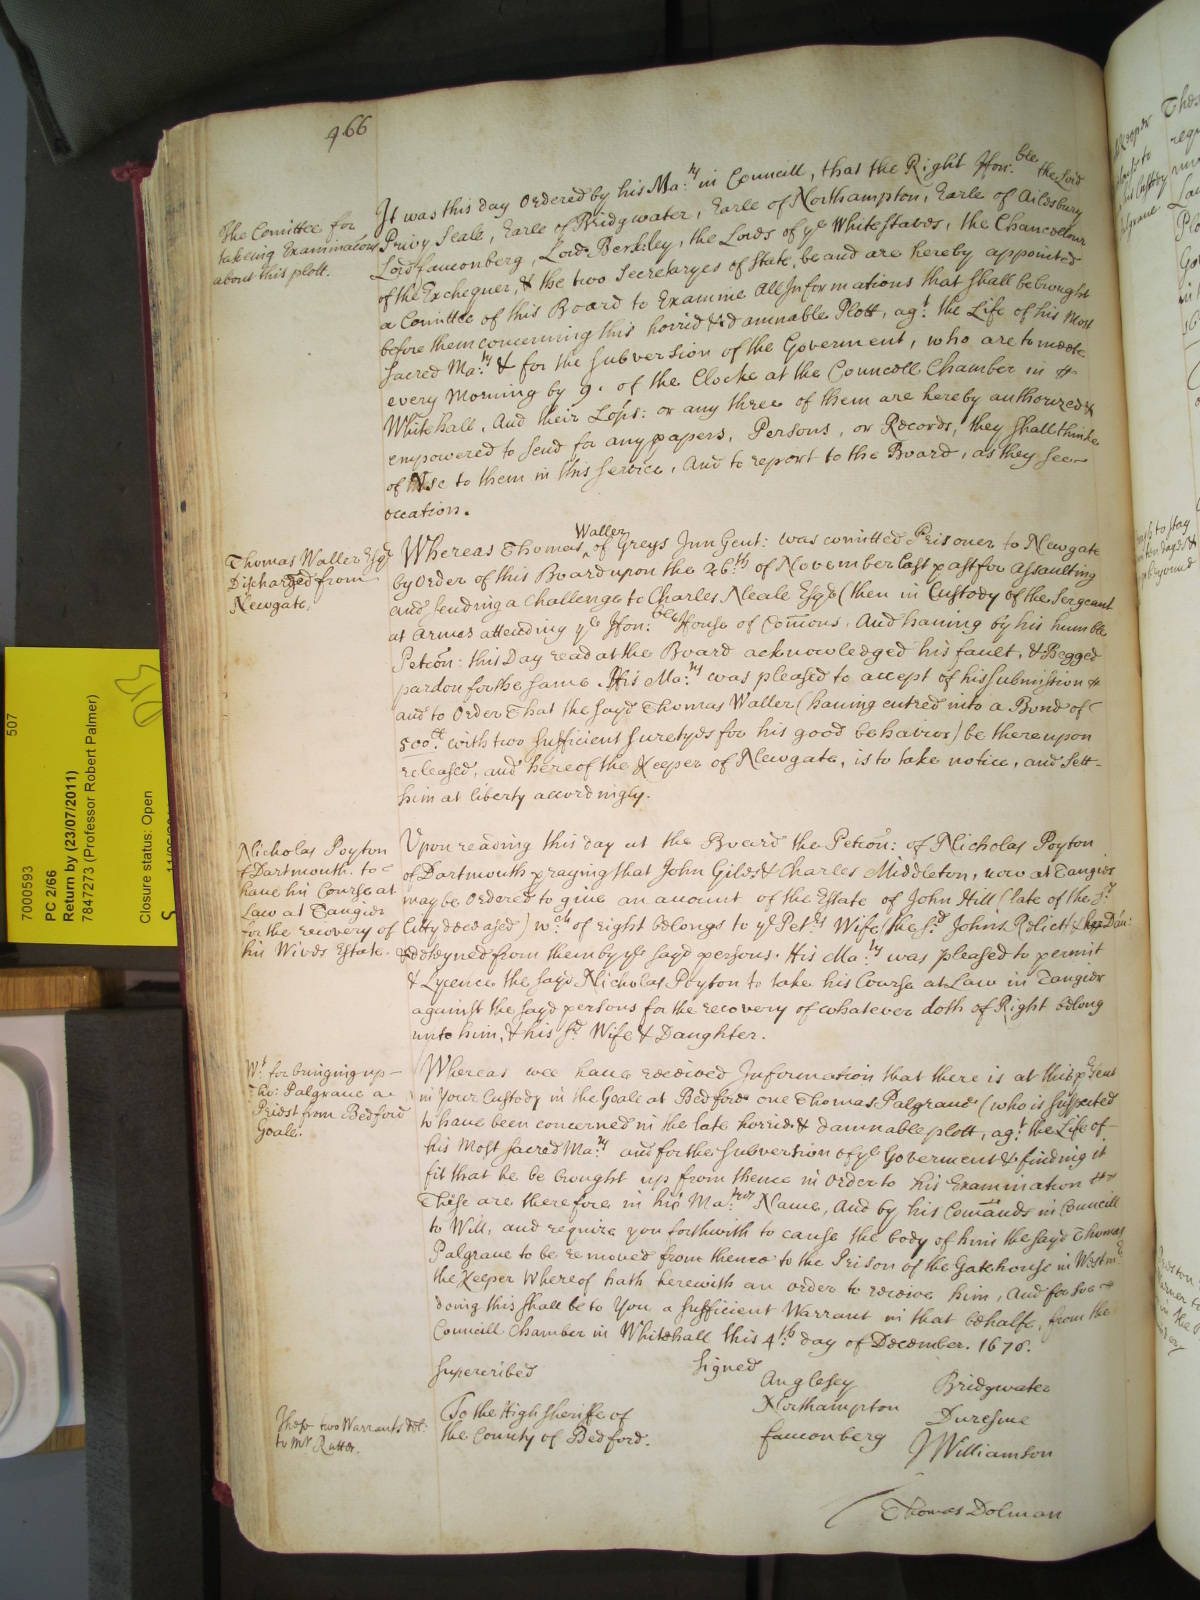 466
The Comittee for
takeing Examinations
about this plott.
It was this day Ordered by his Ma:ty in Councill, that the Right Hon:ble the Lord
Privy Seale, Earle of Bridgwater, Earle of Northampton, Earle of Ailesbury
Lord fauconberg, Lord Berkeley, the Lords of ye White staves, the Chancellour
of the Exchequer, & the two Secretaryes of State, be and are hereby appointed
a Comittee of this Board to Examine All Informations that shall be brought
before them concerning this horrid & damnable Plott, agt. the Life of his Most
Sacred Ma:ty & for the Subversion of the Goverment, who are to meete
every Morning by 9. of the Clocke at the Councell Chamber in
Whitehall, And their Lops: or any three of them are hereby authorized &
empowered to send for any papers, Persons, or Records, they shall thinke
of Use to them in this Service, And to report to the Board, as they see
occation.
Thomas Waller Esqr
Discharged from
Newgate.
Whereas Thomas Waller of Greys Inn Gent: was comitted Prisoner to Newgate
by Order of this Board upon the 26:th of November last past for assaulting
and sending a Challenge to Charles Neale Esqr (then in Custody of the Sergeant
at Armes attending ye Hon:ble House of Comons. And haveing by his humble
Peticon: this Day read at the Board acknowledged his fault, & Begged
pardon for the same. His Ma:ty was pleased to accept of his submission &
and to Order That the sayd Thomas Waller (having entred into a Bond of
500li: with two sufficient suretyes for his good behavior) be thereupon
released, and hereof the Keeper of Newgate, is to take notice, and sett
him at liberty accordingly.
Nicholas Poyton
of Dartmouth. to
have his Course at
Law at Tangier
for the recovery of
his Wives Estate.
Upon reading this day at the Board the Peticon: of Nicholas Poyton
of Dartmouth praying that John Gilds & Charles Middleton, now at Tangier
may be Ordered to give an account of the Estate of John Hill (late of the sd
Citty deceased) wch. of right belongs to ye Petrs Wife (the sd. Johns Relict) & her Dau:
& deteyned from them by ye sayd persons. His Ma:ty was pleased to permit
& Lycence the sayd Nicholas Poyton to take his Course at Law in Tangier
against the sayd persons for the recovery of whatever doth of Right belong
unto him, & his sd. Wife & Daughter.
Wt. for bringing up
Tho: Palgrave a
Priest from Bedford
Goale.
Whereas wee have received Information that there is at this present
in Your Custody in the Goale at Bedford one Thomas Palgrave (who is suspected
to have been concerned in the late horrid & damnable plott, agt. the Life of
his Most sacred Ma:ty and for the Subversion of ye Goverment & finding it
fit that he be brought up from thence in Order to his Examination
These are therefore in his Ma:ties Name, And by his Comands in Councill
to Will, and require you forthwith to cause the body of him the sayd Thomas
Palgrave to be removed from thence to the Prison of the Gatehouse in Westmr.
the Keeper Whereof hath herewith an order to receive him, And for soe
doing this shall be to You a sufficient Warrant in that behalfe, from the
Councill Chamber in Whitehall this 4:th day of December. 1678.
Supercribed
Signed
Anglesey
Bridgwater
To the High Sheriffe of
the County of Bedford.
Northampton
Duresme
fauconberg
J Williamson
These two Warrants del:
to Mr Rutter.
Thomas Dolman
507
7000593
PC 2/66
Return by (23/07/2011)
7847273 (Professor Robert Palmer)
Closure status: Open